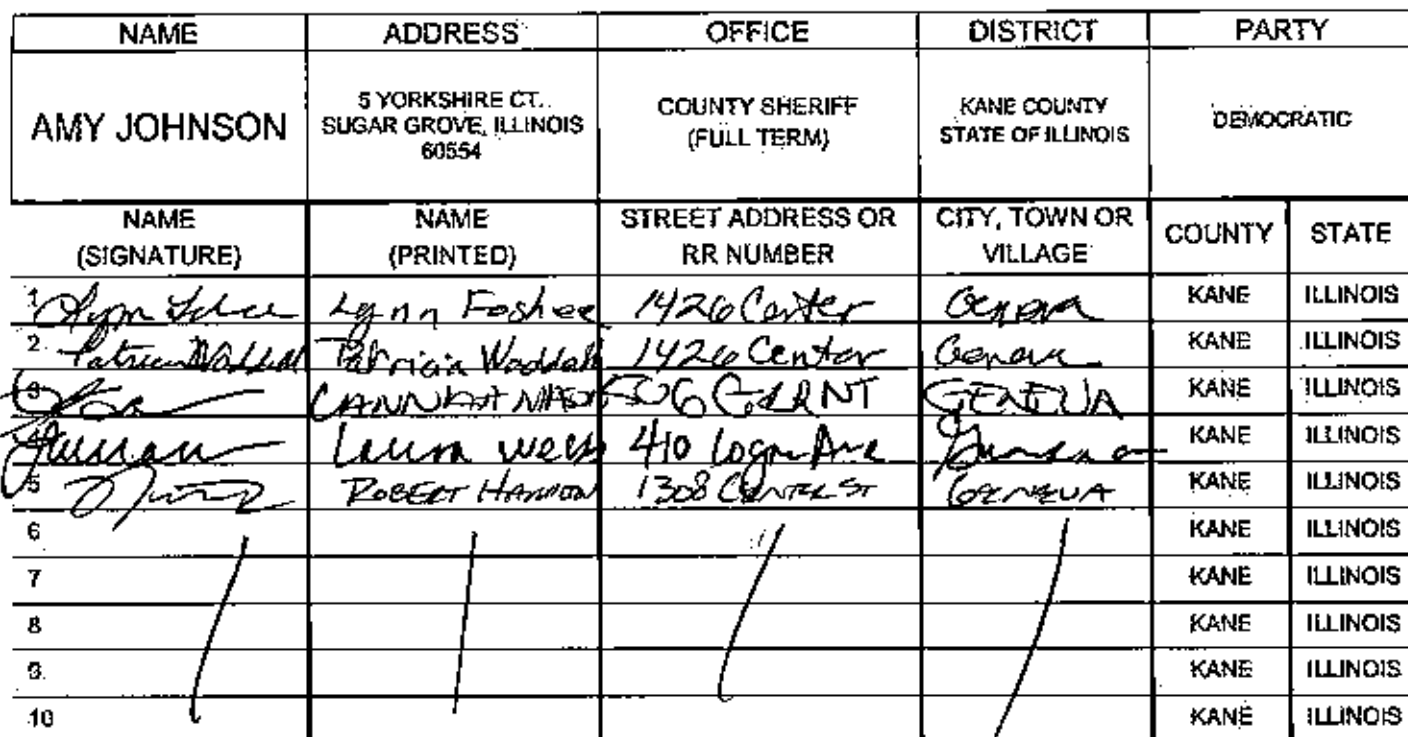 NAME ADDRESS OFFICE DISTRICT PARTY
AMY JOHNSON
5 YORKSHIRE CT.
SUGAR GROVE, ILLINOIS
60554
COUNTY SHERIFF
(FULL TERM)
KANE COUNTY
STATE OF ILLINOIS
DEMOCRATIC
NAME
(SIGNATURE)
NAME
(PRINTED)
STREET ADDRESS OR
RR NUMBER
CITY, TOWN OR
VILLAGE
COUNTY STATE
1 Lynn Foshee 1426 Center Geneva KANE ILLINOIS
2. Patricia Waddell Patricia Waddell 1426 Center Geneva KANE ILLINOIS
3 506 GENEVA KANE ILLINOIS
4 Laura 410 Logan Ave KANE ILLINOIS
5 ROBERT 1308 CENTER ST GENEVA KANE ILLINOIS
6 KANE ILLINOIS
7 KANE ILLINOIS
8 KANE ILLINOIS
9. KANE ILLINOIS
10 KANE ILLINOIS